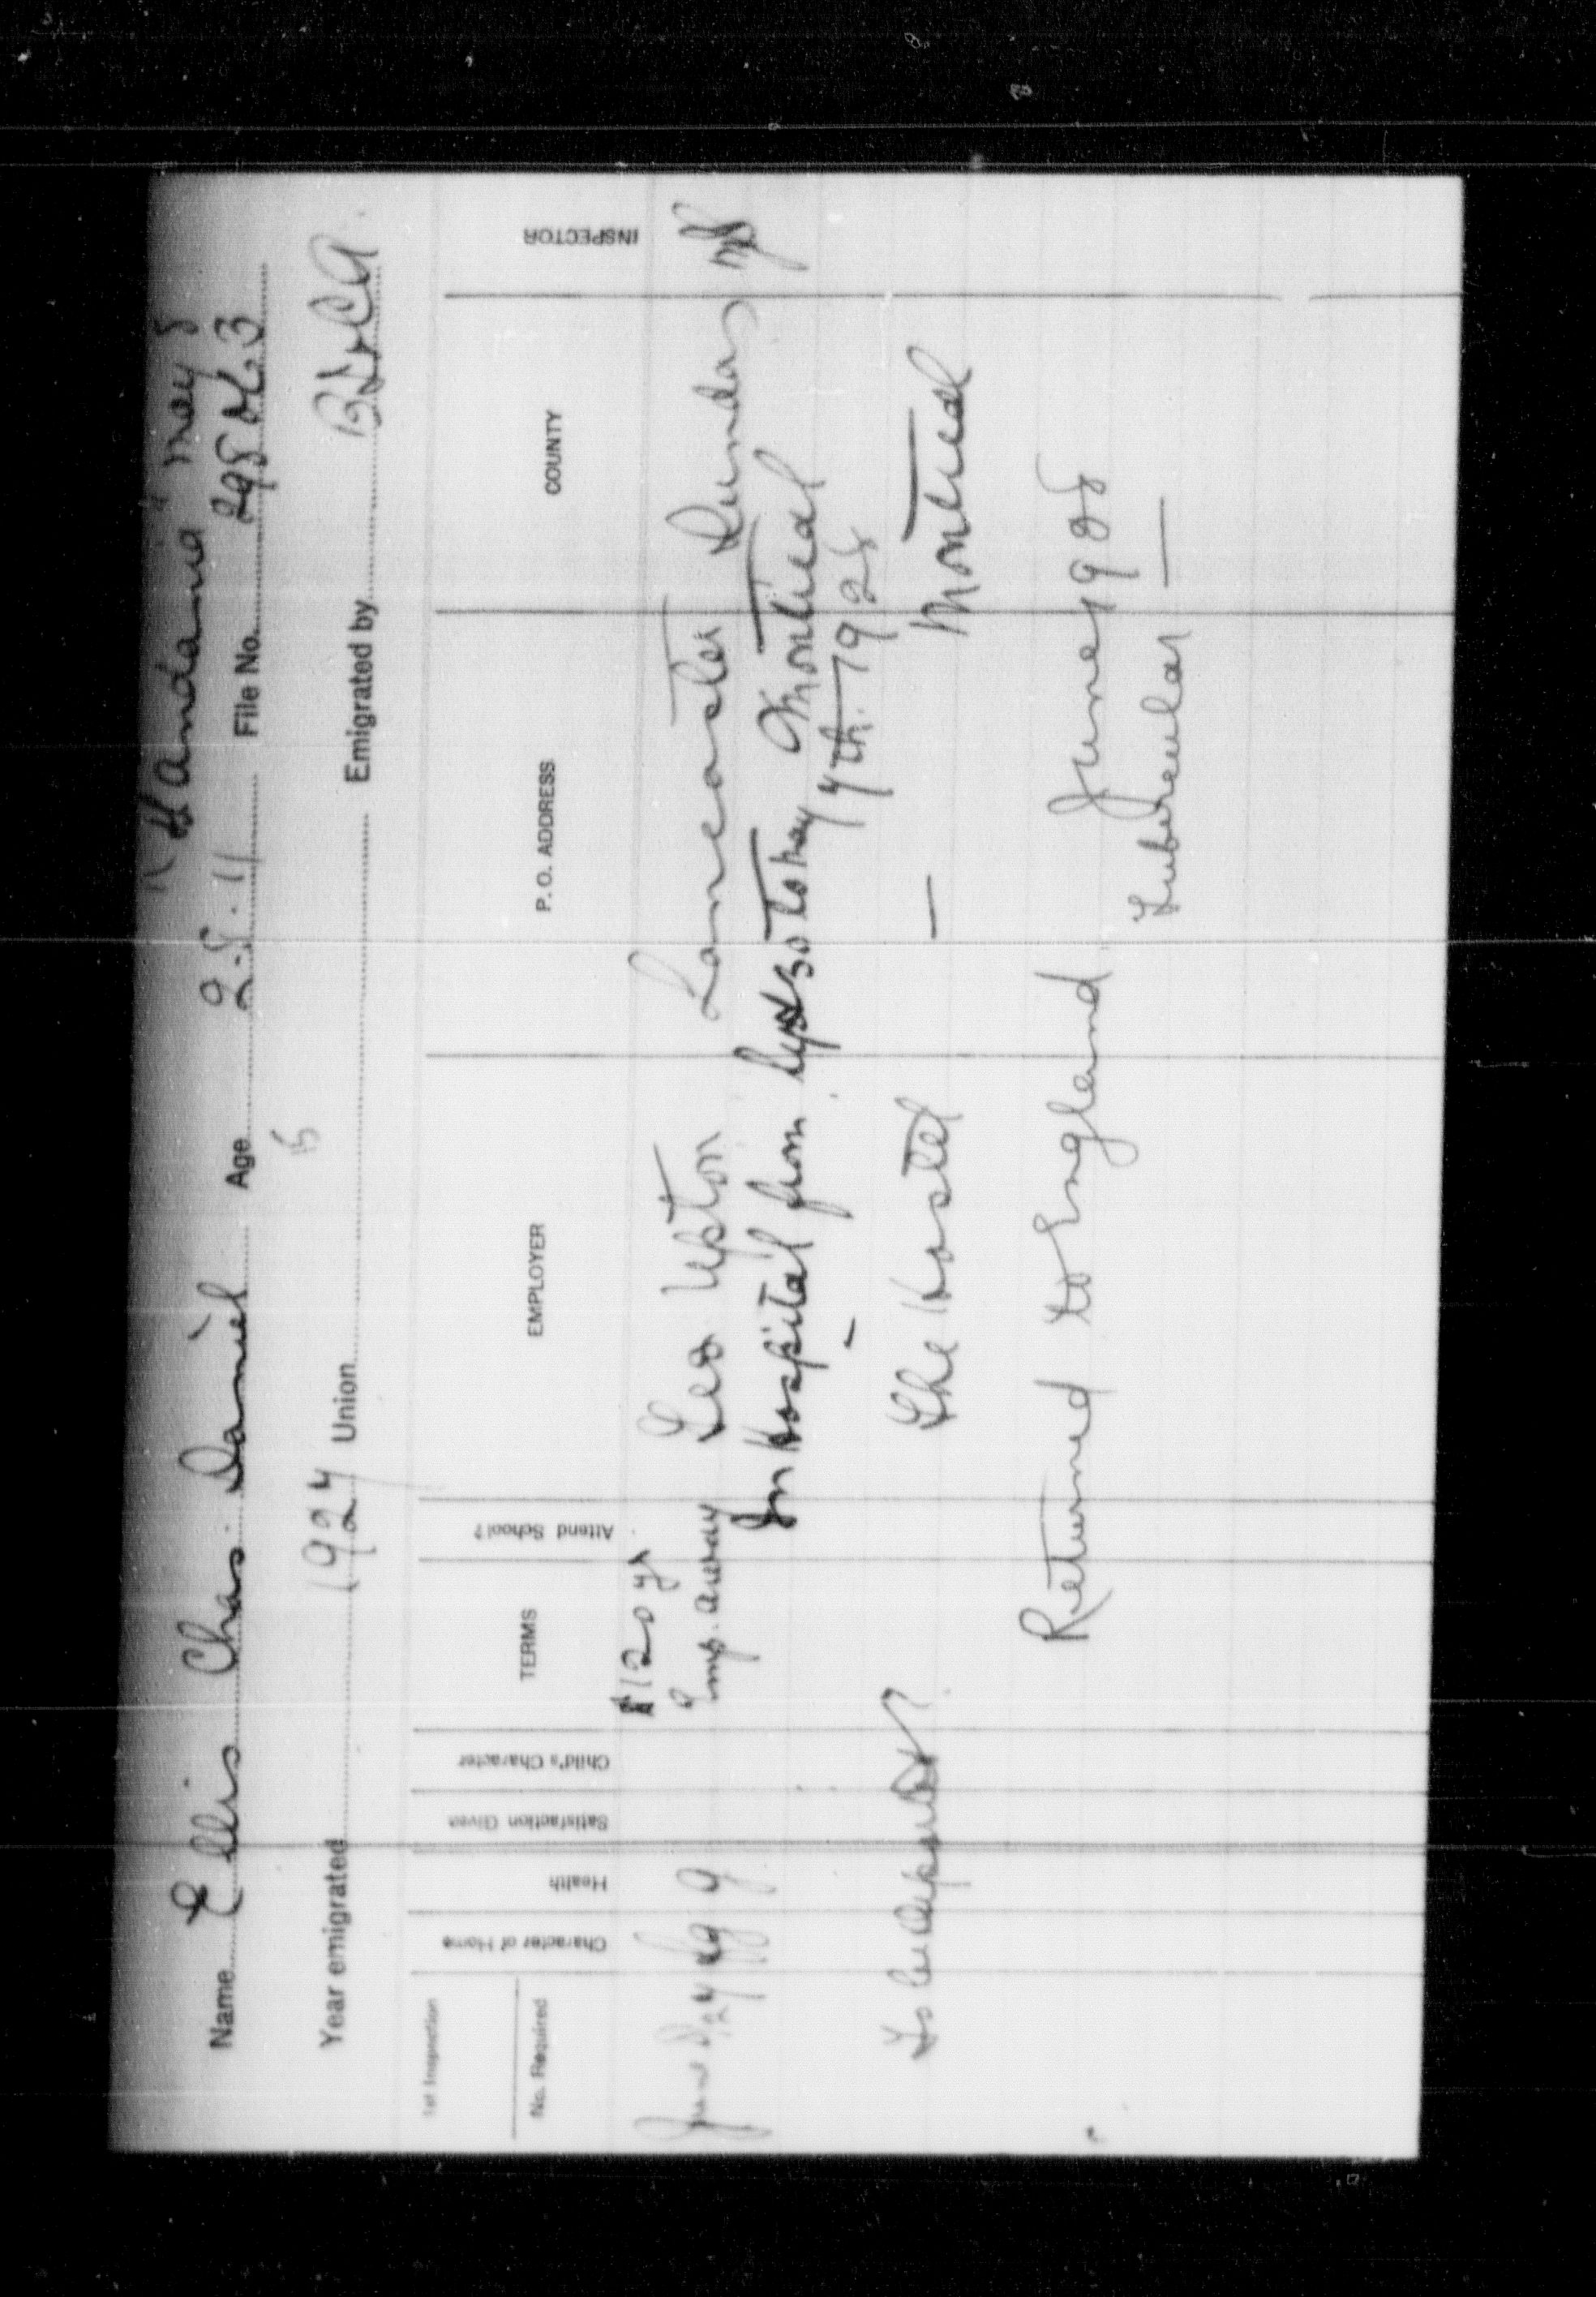 "Handania" May 8
Name Ellis Chas. Daniel Age 2.8.11 File No. 298
15
Year emigrated 1927 Union Emigrated by
1st Inspection
No. Required
Character of Home
Health
Satisfaction Given
Child's Character
TERMS
Attend School?
EMPLOYER
P. O. ADDRESS
COUNTY
INSPECTOR
$120 yr
June 27 g Emp. away Leo Upton Lancaster Dundas
In Hospital from Sept 30 to May 7th 1928 Montreal
The Hostel — Montreal
Returned to England June 1928
Tubercular —